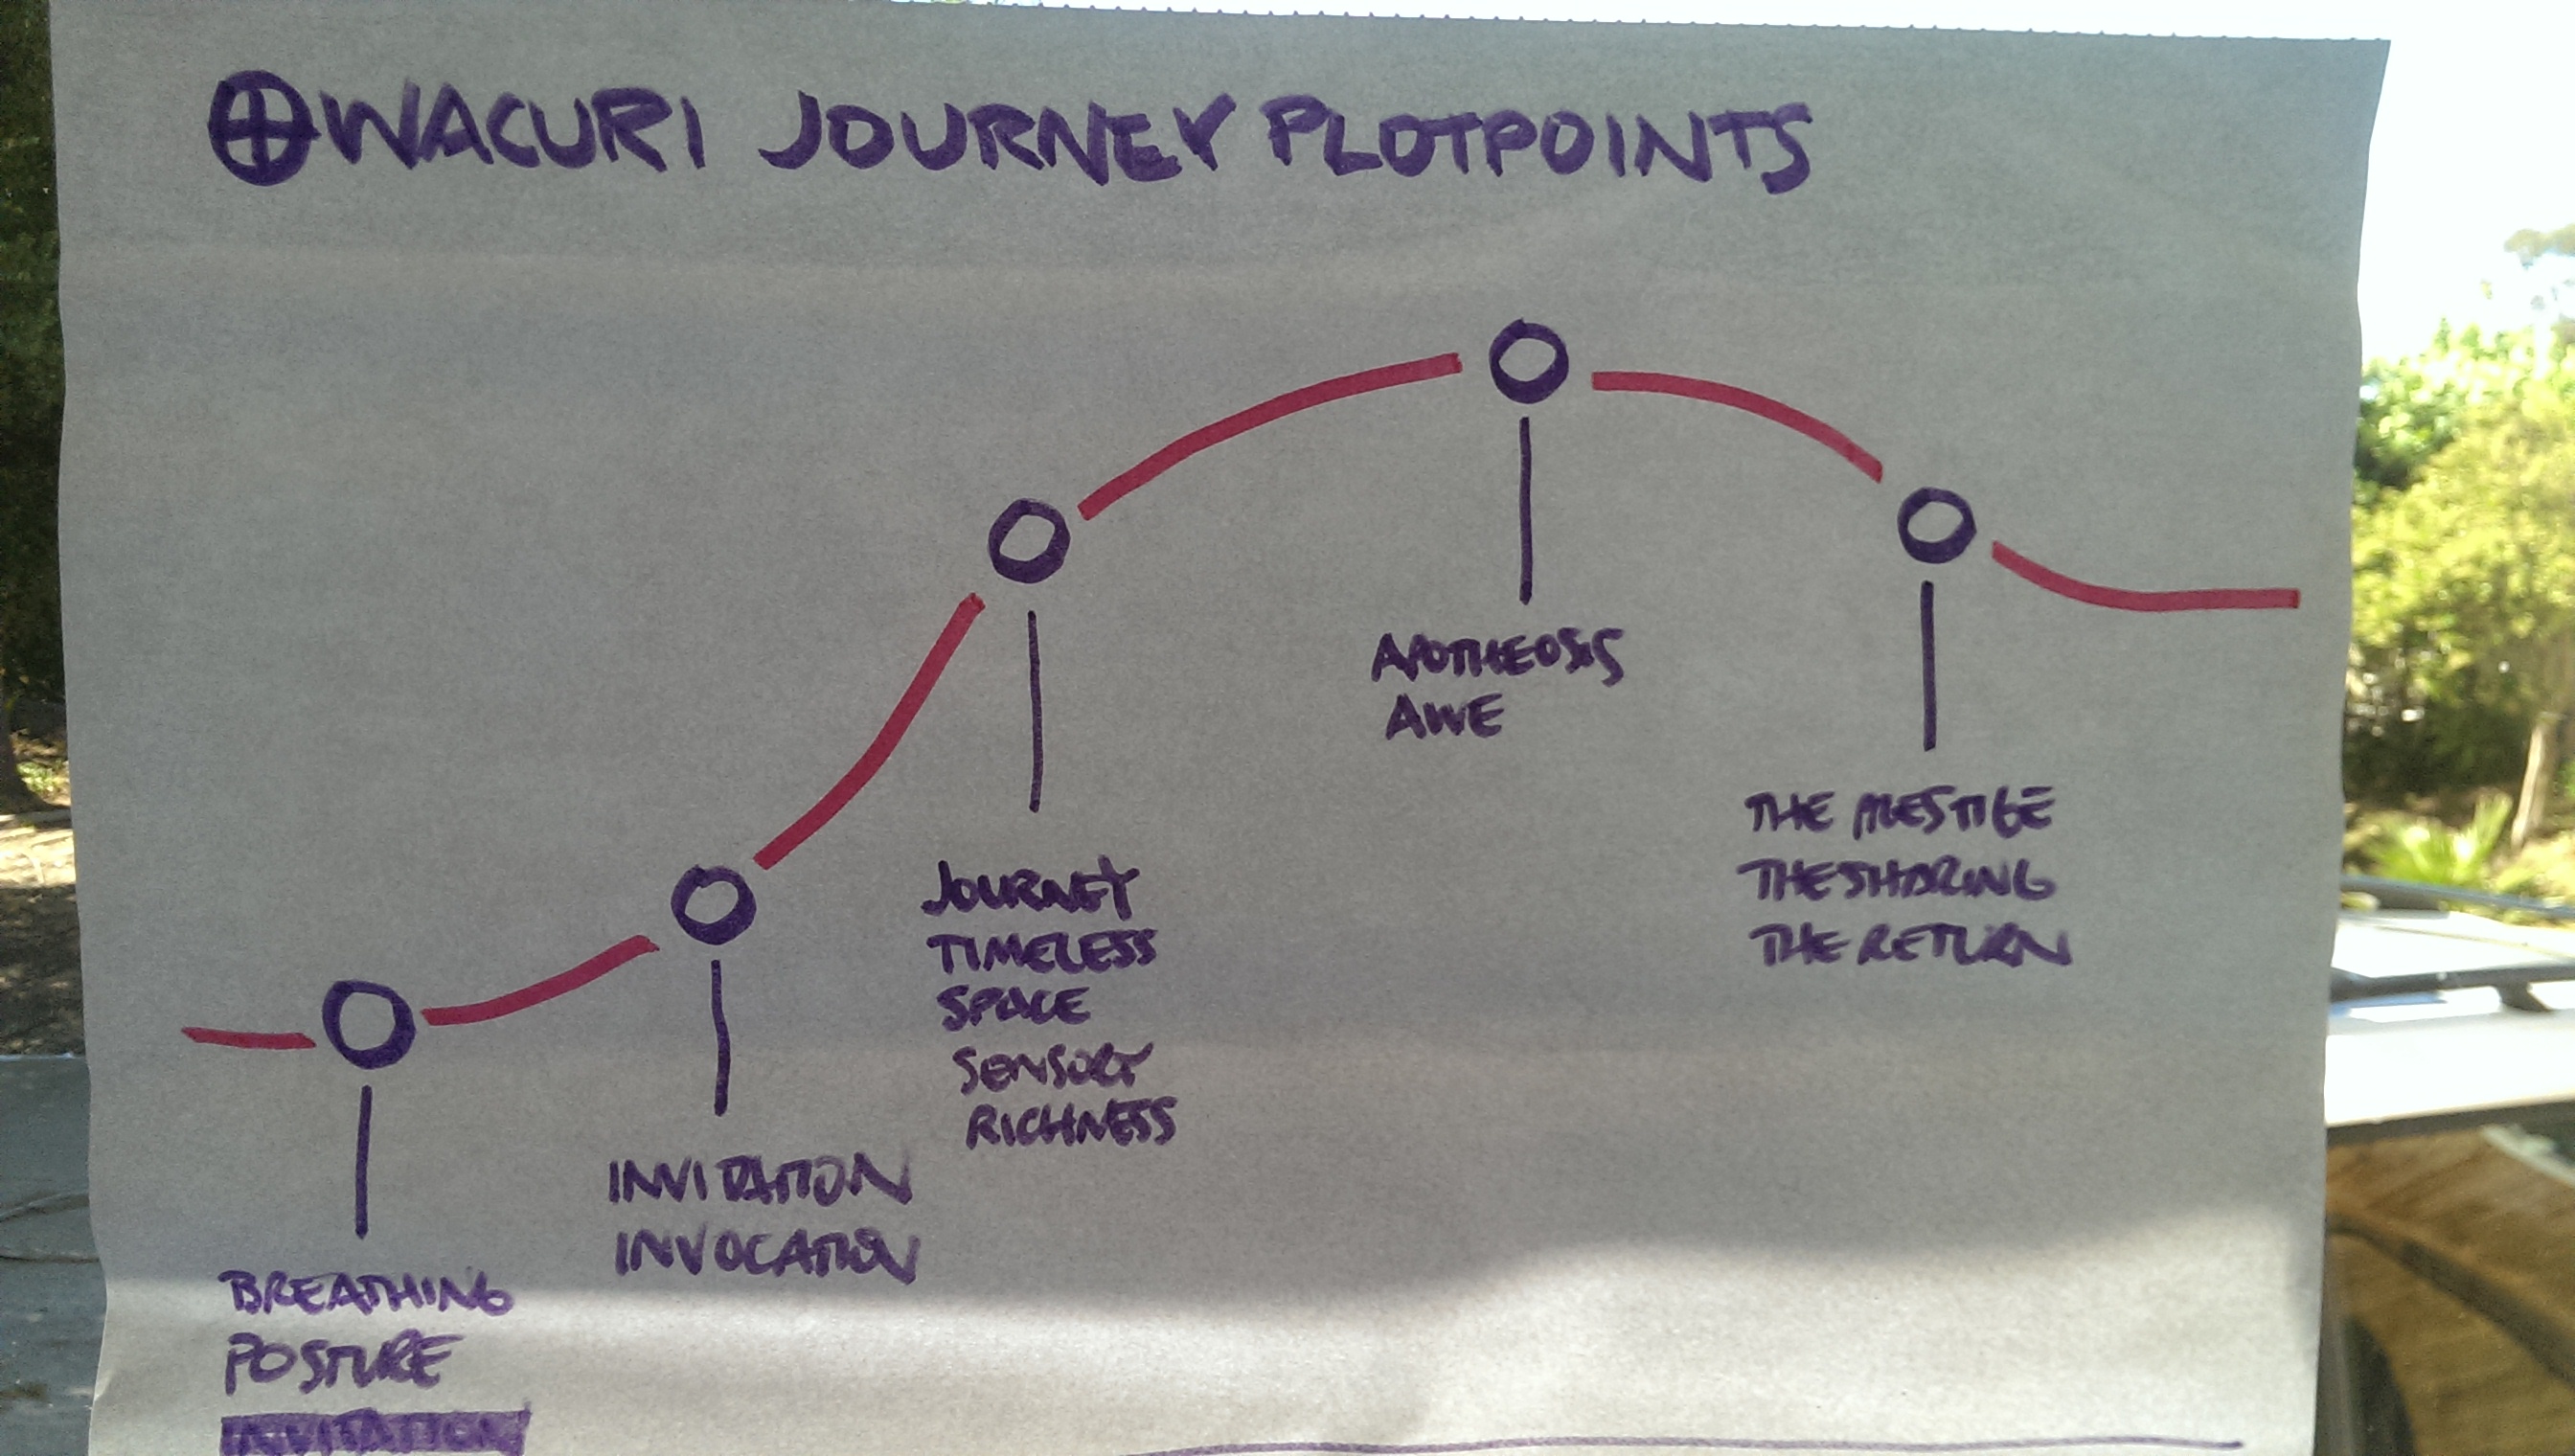 WACURI JOURNEY PLOTPOINTS
BREATHING
POSTURE
INVITATION
INVITATION
INVOCATION
JOURNEY
TIMELESS
SPACE
SENSORY
RICHNESS
APOTHEOSIS
AWE
THE PRESTIGE
THE SHARING
THE RETURN